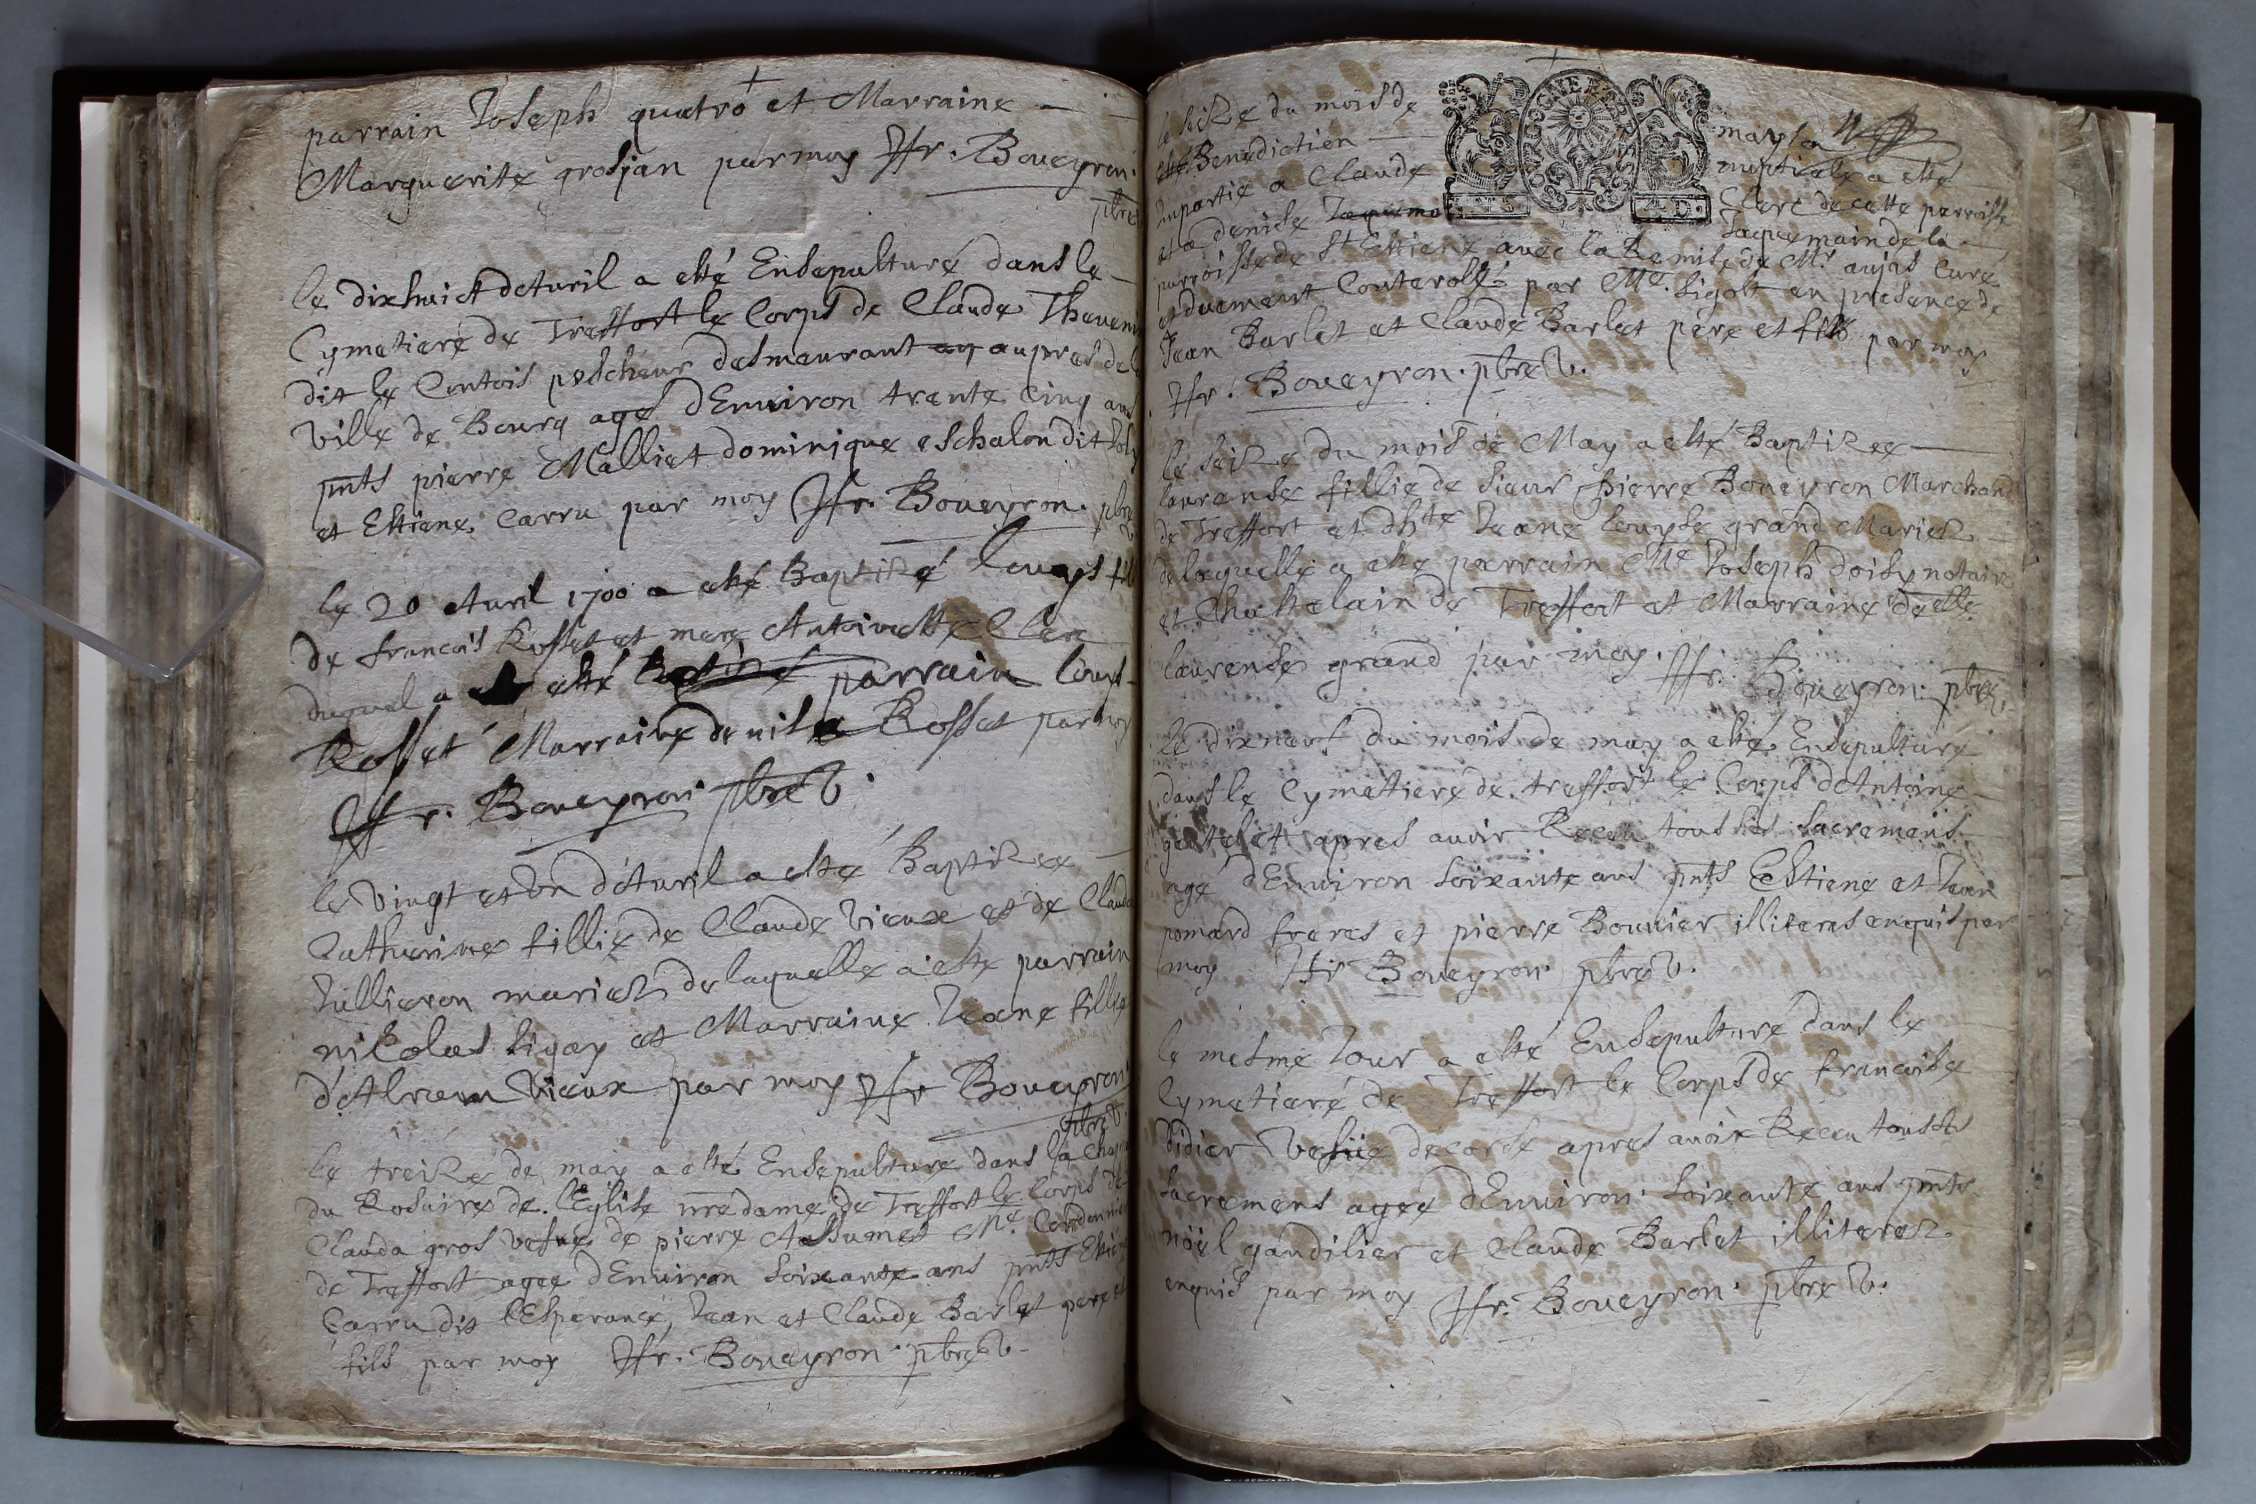 parrain Joseph quatro et Marraine
Marguerite grosjan par moy Hr. Boueyron.
pbre
le dixhuict d'Auril a esté Ensepulturé dans le
Cymetiere de Treffort le Corps de Claude Theueni
dit le Contois pescheur desmeurant ay aupres de la
ville de Bourg agé d'Enuiron trente cinq ans
pnts pierre Malliet dominique eschalon dit
et Estiene Carru par moy Hr. Boueyron. pbre
le 20 Auril 1700 a esté Baptizé Louys fils
de francois Rosset et mere Antoinette Clerc
duquel a esté parrain Louis
Rosset Marraine denise Rosset par moy
Hr. Boueyron pbre V.
le vingt et vn d'Auril a esté Baptizee
Catherine fillie de Claude Vieux et de Clauda
Jullieron mariez de laquelle a esté parrain
nicolas sigay et Marraine Jeane fillie
d'Abram Vieux par moy Hr Boueyron
pbre V.
le treize de may a esté Ensepulture dans la chap
du Rosaire de l'Eglise nre dame de Treffort le Corps de
Clauda gros vefue de pierre Assumet Me Cordonnier
de Treffort agee d'Enuiron soixante ans pnts Estiene
Carru dit l'Esperance, Jean et Claude Barlet pere et
fils par moy Hr. Boueyron. pbre V.
le seize du mois de may la
Benediction nuptiale a esté
Impartie a Claude Clerc de cette perroisse
et a denise Jaquemain de la
parroisse de St Estiene auec la Remise de Mr aujas Curé
et duement Conterollé par Me. sigolt en presence de
Jean Barlet et Claude Barlet pere et fils par moy
Hr. Boueyron. pbre V.
GNERALITE DE BOURGOGNE
le seize du mois de May a esté Baptizee
laurense fillie de sieur pierre Boueyron Marchand
de Treffort et dhte Jeane louyse grand Mariez
de laquelle a esté parrain Me Joseph doisy notaire
et Chastelain de Treffort et Marraine delle
laurense grand par moy. Hr. Boueyron. pbre
le dixneuf du mois de may a esté Ensepulturé
dans le Cymetiere de treffort le Corps d'Antoine
apres auoir Receu tous les sacremens
agé d'Enuiron soixante ans pnts Estiene et Jean
pomard freres et pierre Bouuier illiteres enquis par
moy Hr Boueyron. pbre V.
le mesme Jour a esté Ensepulturé dans le
Cymetiere de Treffort le Corps de francoise
didier vefue decorse apres auoir Receu tous les
sacremens agee d'Enuiron soixante ans pnts
noël gandilier et Claude Barlet illiterez
enquis par moy Hr. Boueyron. pbre V.